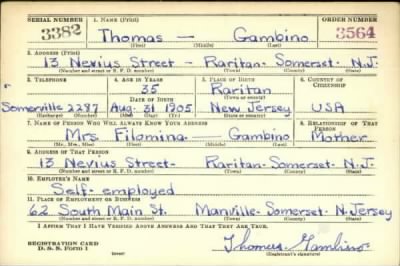 SERIAL NUMBER 1. NAME (Print) ORDER NUMBER
3382 Thomas — Gambino 3564
(First) (Middle) (Last)
2. ADDRESS (Print)
13 Nevius Street - Raritan- Somerset- N.J.
(Number and street or R. F. D. number) (Town) (County) (State)
3. TELEPHONE 4. AGE IN YEARS 5. PLACE OF BIRTH 6. COUNTRY OF CITIZENSHIP
35 Raritan
DATE OF BIRTH (Town or county)
Somerville 2297 Aug. 31 1905 New Jersey USA
(Exchange) (Number) (Mo.) (Day) (Yr.) (State or country)
7. NAME OF PERSON WHO WILL ALWAYS KNOW YOUR ADDRESS 8. RELATIONSHIP OF THAT PERSON
Mrs. Filomina — Gambino Mother
(Mr., Mrs., Miss) (First) (Middle) (Last)
9. ADDRESS OF THAT PERSON
13 Nevius Street- Raritan- Somerset- N.J.
(Number and street or R. F. D. number) (Town) (County) (State)
10. EMPLOYER'S NAME
Self- employed
11. PLACE OF EMPLOYMENT OR BUSINESS
62 South Main St. Manville- Somerset- N. Jersey
(Number and street or R. F. D. number) (Town) (County) (State)
I AFFIRM THAT I HAVE VERIFIED ABOVE ANSWERS AND THAT THEY ARE TRUE.
REGISTRATION CARD
D. S. S. Form 1 Thomas Gambino
(Registrant's signature)